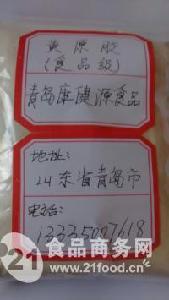 黄原胶
(食品级)
青岛康健源食品
地址:
山东省青岛市
电话:
13335007618
食品商务网
www.21food.cn